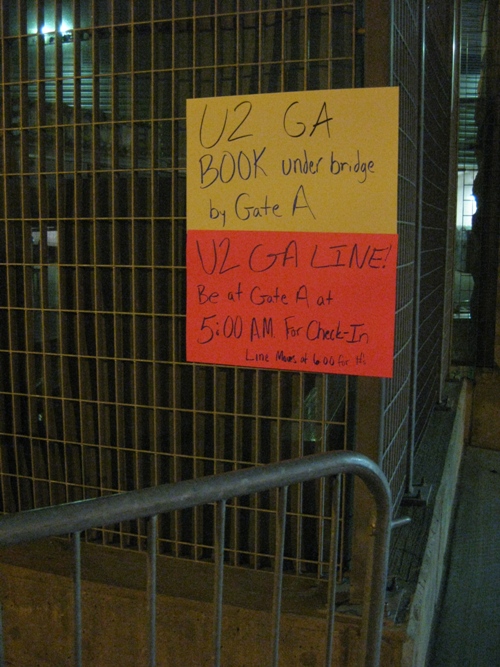 U2 GA
BOOK under bridge
by Gate A
U2 GA LINE!
Be at Gate A at
5:00 AM For Check-In
Line Moves at 6:00 for